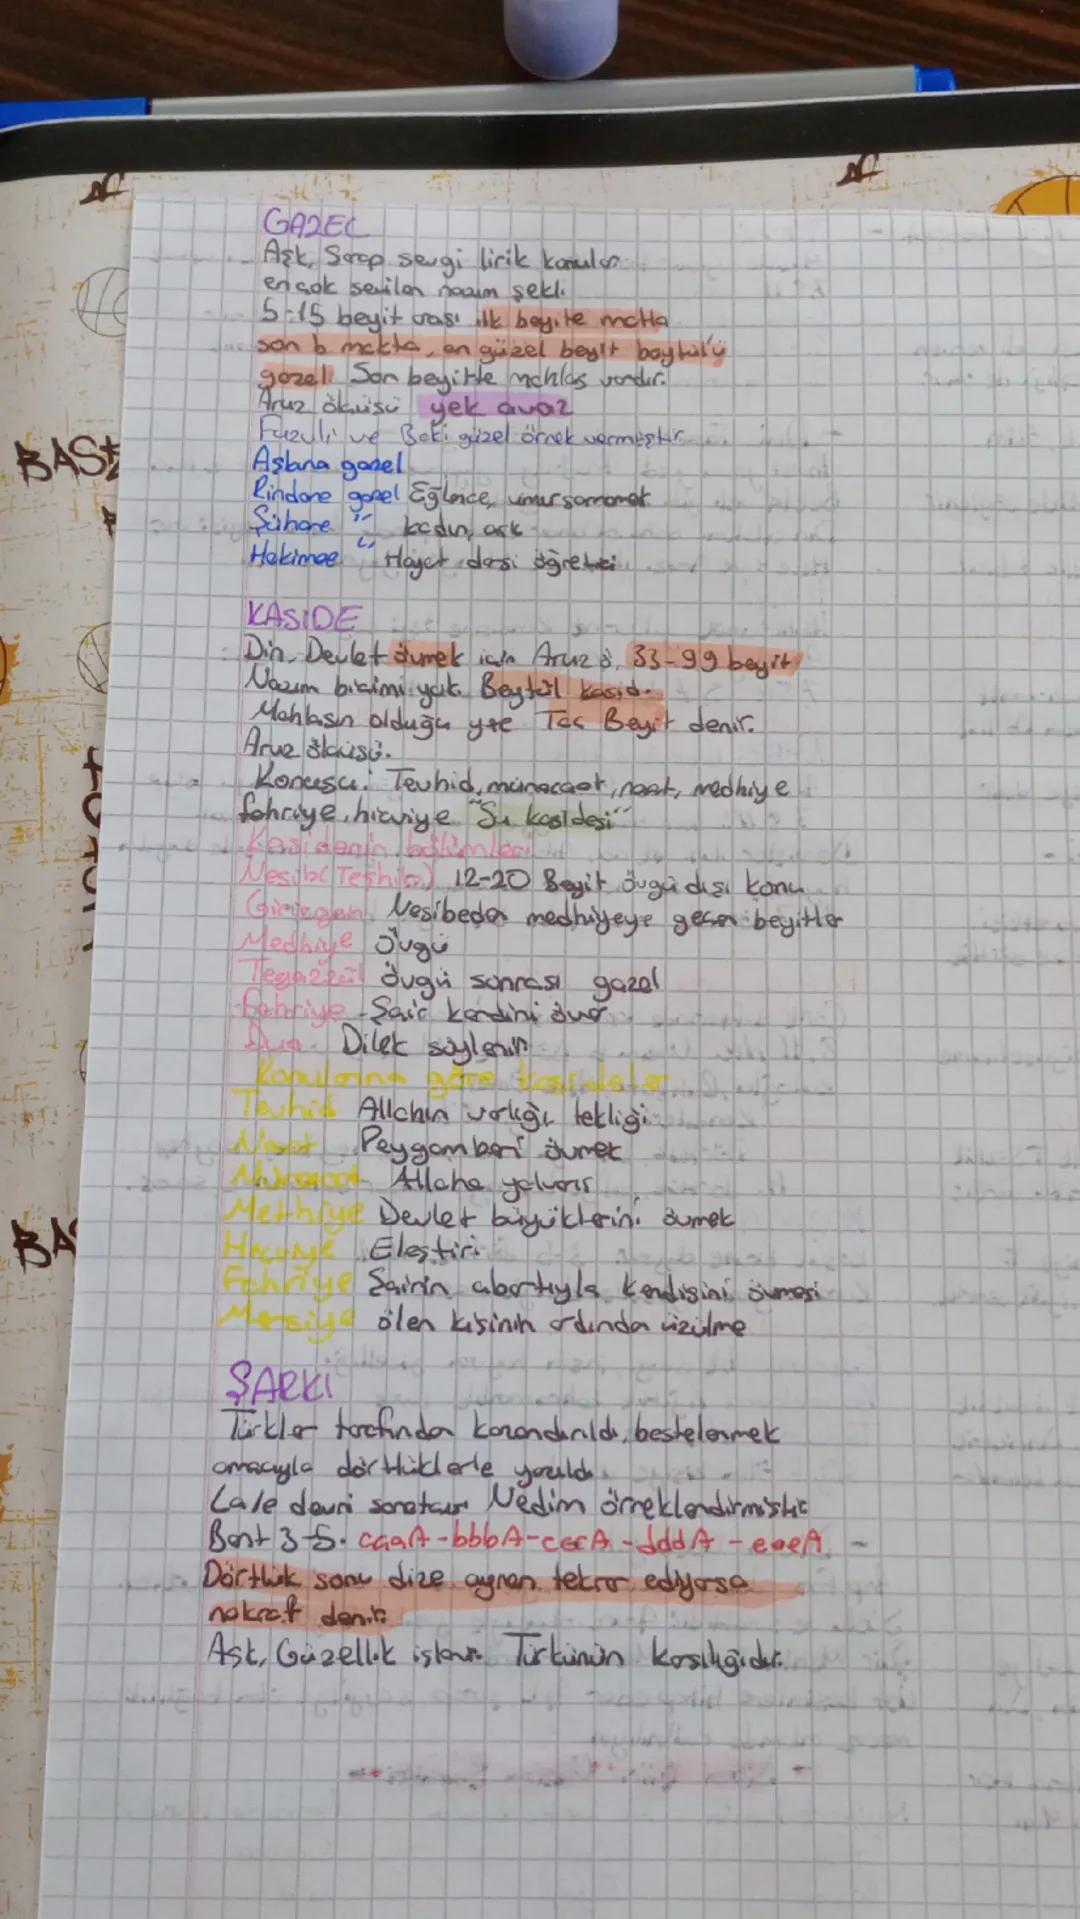 GAZEL
Aşk, Şarap sevgi lirik konular
en çok sevilen nazım şekli
5-15 beyit arası ilk beyite matla
son b makta, en güzel beyit beytül'ü
gazel. Son beyitte mahlas vardır.
Aruz ölçüsü yek avaz
Fuzuli ve Baki güzel örnek vermiştir
Aşıkana gazel
Rindane gazel Eğlence, umursamamak
Şühane " kadın, aşk
Hakimae " Hayat dersi öğretici
KASİDE
Din, Devlet övmek için Aruz ö. 33-99 beyit
Nazım birimi yok. Beytül kasid.
Mahlasın olduğu yre Tac Beyit denir.
Aruz ölçüsü.
Konusu: Tevhid, münacaat, naat, medhiye
fahriye, hicviye "Su kasidesi"
Kasidenin bölümleri
Nesib (Teşhib) 12-20 Beyit övgü dışı konu
Girizgah Nesibeden medhiyeye geçen beyitler
Medhiye övgü
Tegazzül övgü sonrası gazel
Fahriye Şair kendini över
Dua Dilek söylenir
Konularına göre kasideler
Tevhid Allahın varlığı tekliği
Naat Peygamberi övmek
Münacaat Allaha yalvarış
Methiye Devlet büyüklerini övmek
Hicviye Eleştiri
Fahriye Şairin abartıyla kendisini övmesi
Mersiye ölen kişinin ardında üzülme
ŞARKI
Türkler tarafından kazandırıldı, bestelenmek
amacıyla dörtlüklerle yazıldı
Lale devri sanatçısı Nedim örneklendirmiştir
Bent 3-5. aaaA - bbbA - cccA - dddA - eeeA
Dörtlük sonu dize aynen tekrar ediyorsa
nakrat denir.
Aşk, Güzellik işlenir. Türkünün karşılığıdır.
BAS
BA